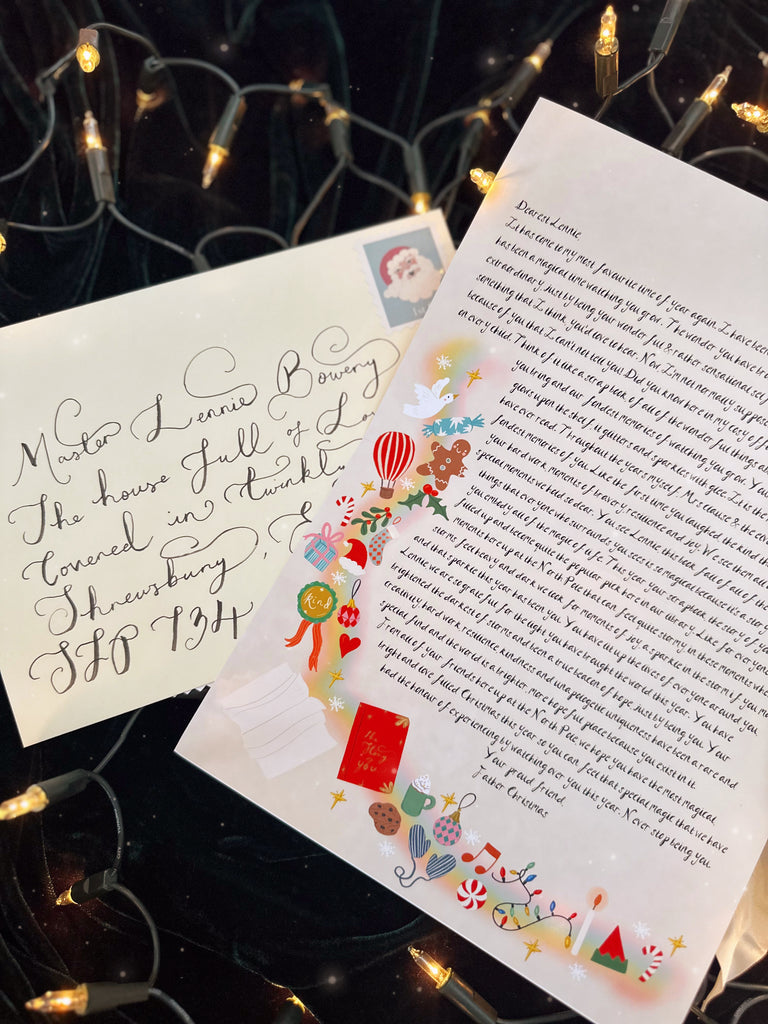 Master Lennie Bowery
The house full of
Covered in twinkl
Shrewsbury, E
SLP 734
1st
Dearest Lennie,
It has come to my most favourite time of year again. I have been
has been a magical time watching you grow. The wonder you have br
extraordinary just by being your wonderful & rather sensational self
something that I think you'd love to hear. Now I'm not normally suppose
because of you that I can't not tell you! Did you know here in my
on every child. Think of it like a scrap book of all of the wonderful things
you bring and our fondest memories of watching you grow. You
glows upon the shelf, it glitters and sparkles with glee. It is the
have ever read. Throughout the year myself, Mrs Clause & the
fondest memories of you. Like the first time you laughed, the kind
your hard work, moments of bravery, resilience and joy. We see them
special moments we hold so dear. You see Lennie this book full of all of the
things that everyone who surrounds you sees is so magical because it's a
you embody all of the magic of life. This year your scrapbook, the story of you
filled up and become quite the popular pick here in our library. Like for everyone
moments here up at the North Pole that can feel quite stormy. In these moments
storms feel heavy and dark we look for moments of joy, a sparkle in the storm if you
and that sparkle this year has been you. You have lit up the lives of everyone around you
Lennie we are so grateful for the light you have brought the world this year. You have
brightened the darkest of storms and been a true beacon of hope just by being you. Your
creativity, hard work, resilience, kindness and unapologetic uniqueness have been a rare and
special find and the world is a brighter, more hopeful place because you exist in it.
From all of your friends here up at the North Pole we hope you have the most magical
bright and love filled Christmas this year so you can feel that special magic that we have
had the honour of experiencing by watching over you this year. Never stop being you.
Your proud friend,
Father Christmas
kind